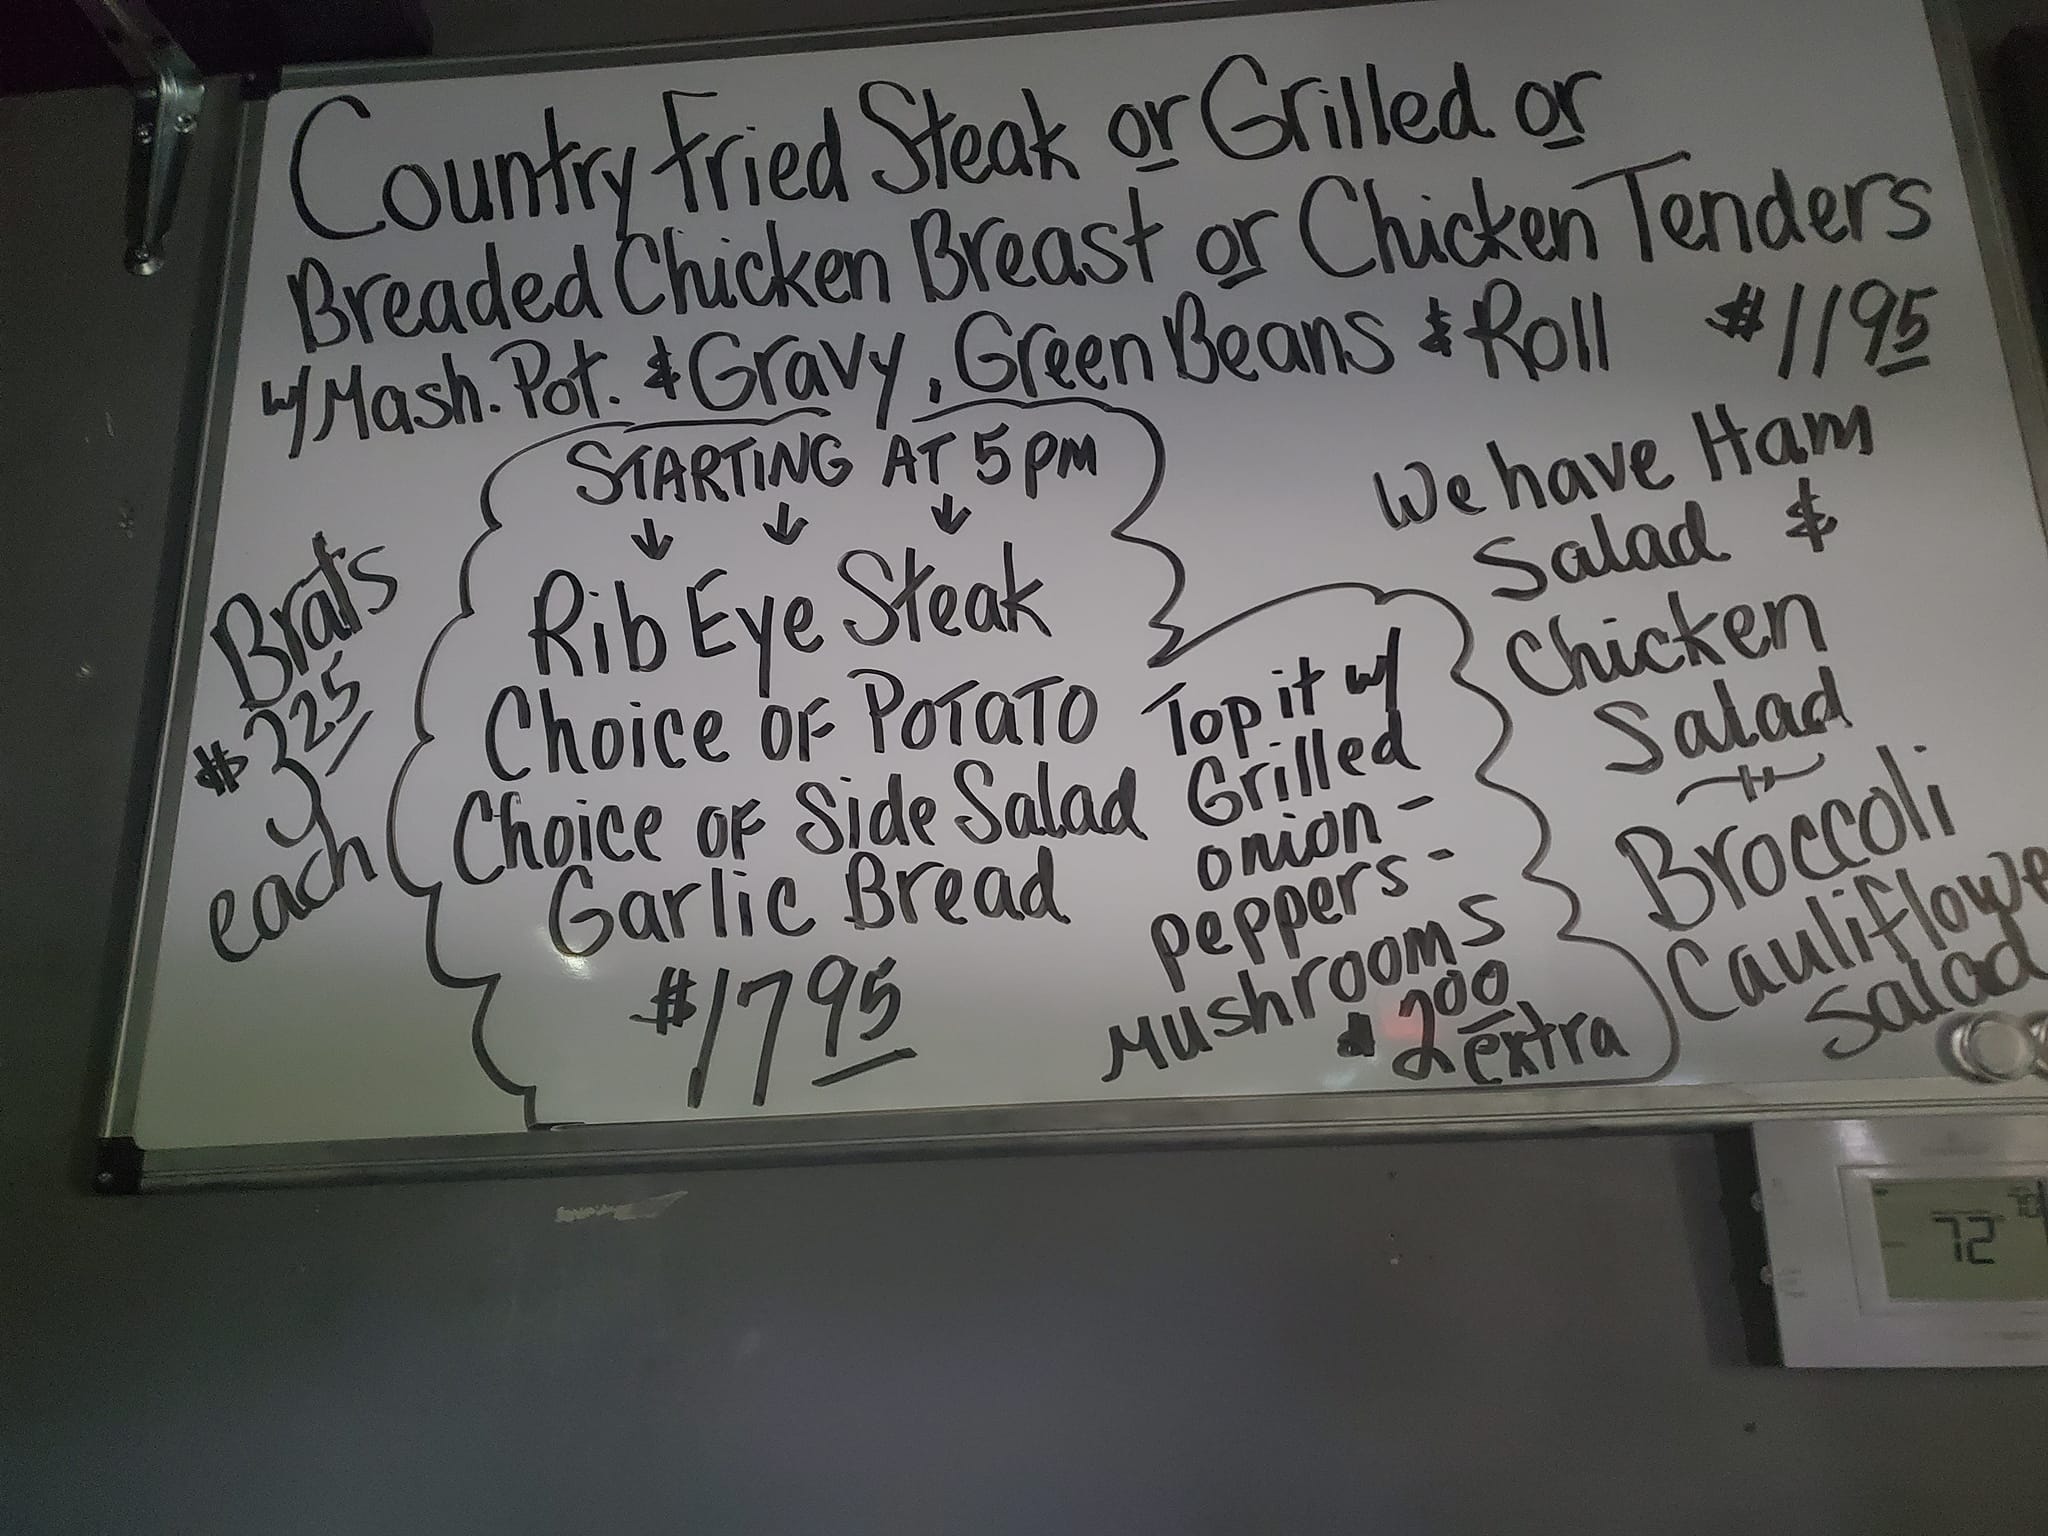 Country Fried Steak or Grilled or
Breaded Chicken Breast or Chicken Tenders
w/ Mash. Pot. & Gravy, Green Beans & Roll $11.95
STARTING AT 5 PM
Rib Eye Steak
Choice OF POTATO
Choice OF Side Salad
Garlic Bread
$17.95
Top it w/
Grilled
onion -
peppers -
Mushrooms
$2.00
extra
Brats
$3.25
each
We have Ham
Salad &
Chicken
Salad
Broccoli
Cauliflowe
Salad
72
70